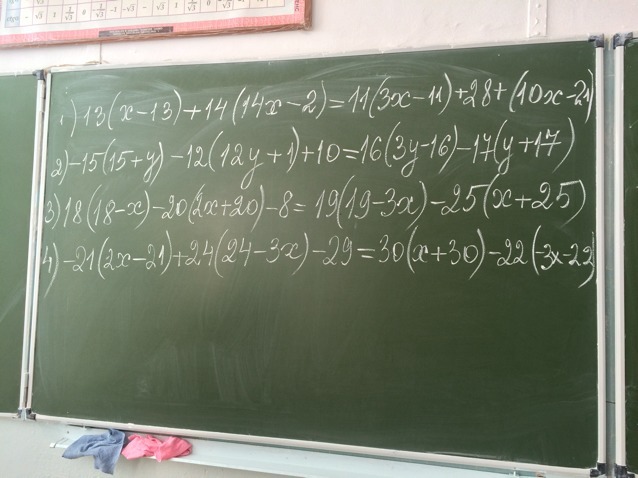 1) 13(x-13)+14(14x-2)=11(3x-11)+28+(10x-21)
2) -15(15+y)-12(12y+1)+10=16(3y-16)-17(y+17)
3) 18(18-x)-20(2x+20)-8=19(19-3x)-25(x+25)
4) -21(2x-21)+24(24-3x)-29=30(x+30)-22(-3x-22)